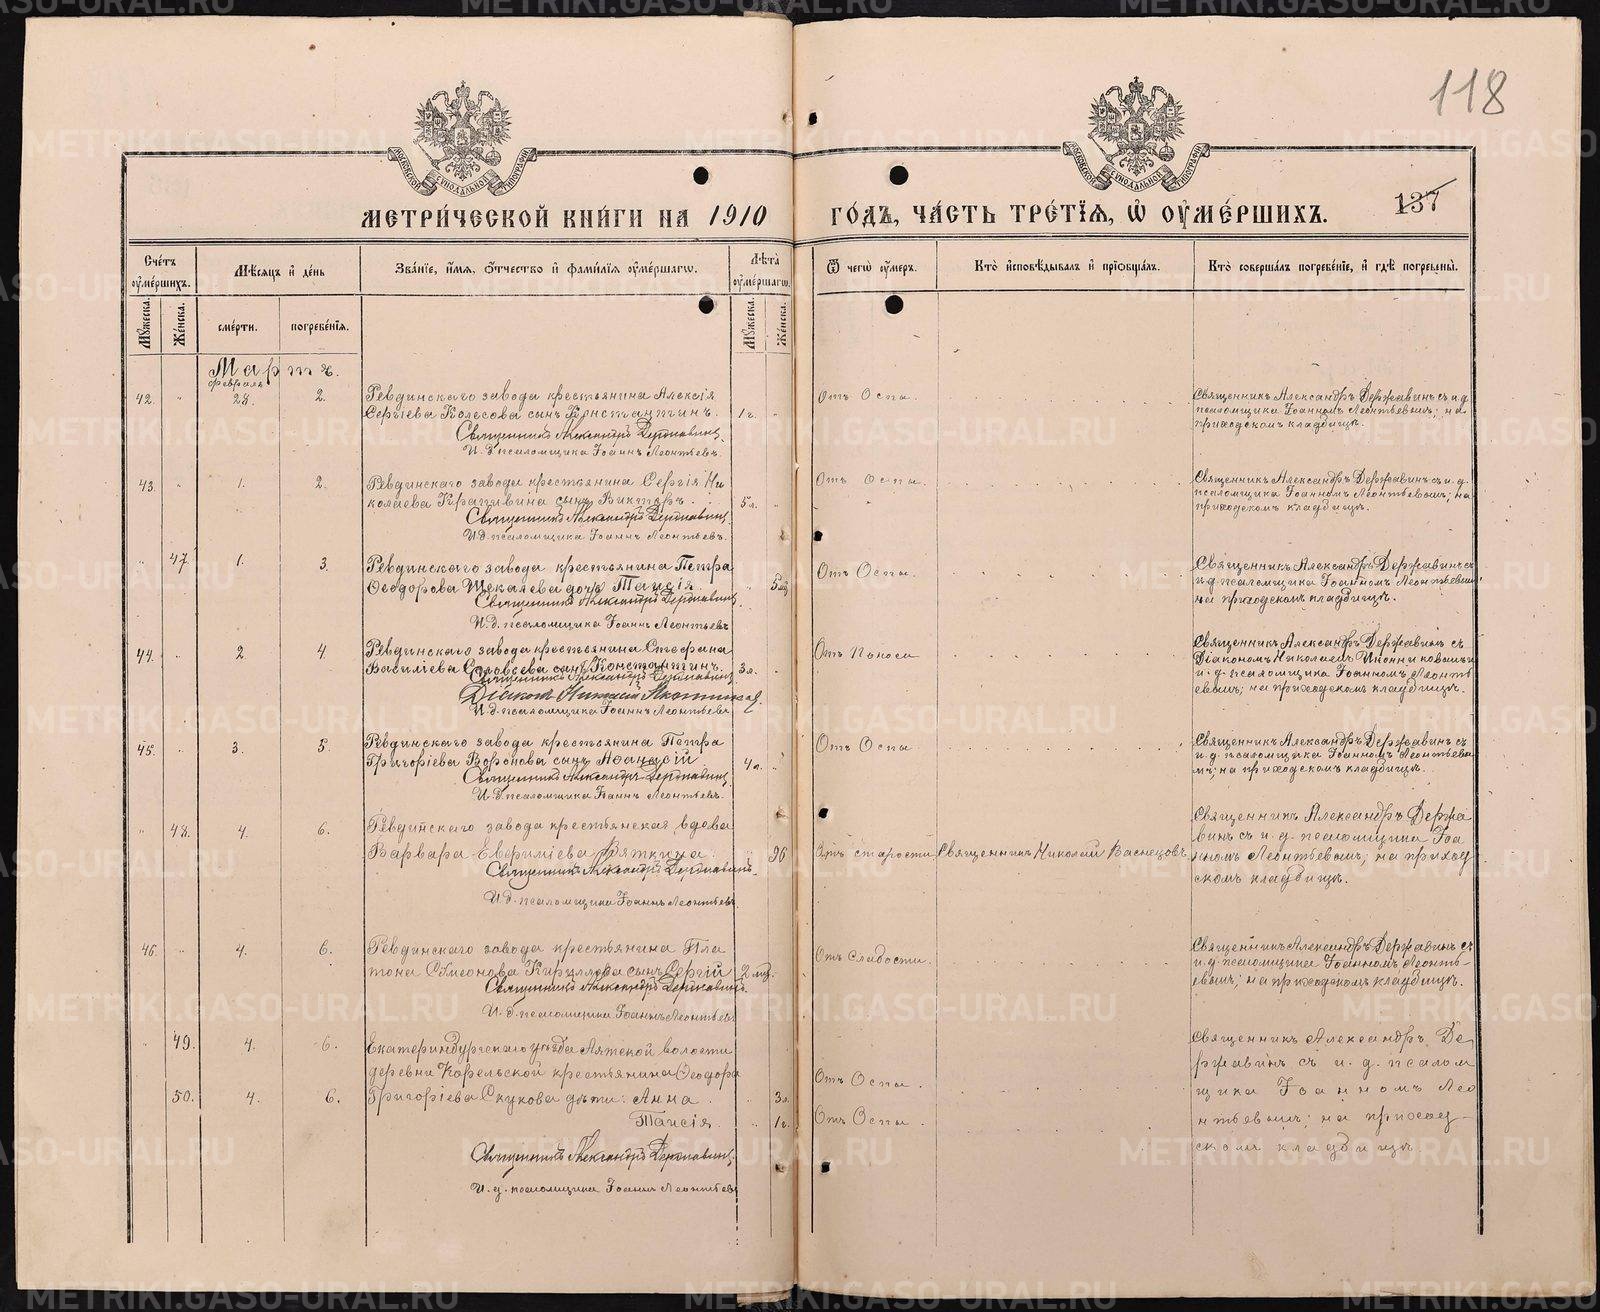 118
137
МЕТРИ́ЧЕСКОЙ КНИ́ГИ НА 1910 ГО́ДЪ, ЧА́СТЬ ТРЕ́ТІЯ, Ѡ ОУМЕ́РШИХЪ.
Сче́тъ оуме́ршихъ.
Мꙋжеска.
Же́нска.
Мѣ́сяцъ и де́нь
сме́рти.
погребе́нія.
Зва́ніе, и́мя, о́тчество и фами́лія оуме́ршагѡ.
Лѣ́та оуме́ршагѡ.
Мꙋжеска.
Же́нска.
Ѿ чегѡ̀ оу́меръ.
Кто̀ исповѣ́дывалъ и пріѡбща́лъ.
Кто̀ соверша́лъ погребе́ніе, и гдѣ̀ погребены̀.
Мартъ.
февраль
42. " 28. 2.
Ревдинскаго завода крестьянина Алексія
Сергіева Колесова сынъ Константинъ. 1 г. "
Священникъ Александръ Державинъ.
И. д. псаломщика Іоаннъ Леонтьевъ.
Отъ Оспы.
Священникъ Александръ Державинъ съ и. д.
псаломщика Іоанномъ Леонтьевымъ; на
приходскомъ кладбищѣ.
43. " 1. 2.
Ревдинскаго завода крестьянина Сергія Ни
колаева Крапивина сынъ Викторъ. 5 л. "
Священникъ Александръ Державинъ.
И. д. псаломщика Іоаннъ Леонтьевъ.
Отъ Оспы.
Священникъ Александръ Державинъ съ и. д.
псаломщика Іоанномъ Леонтьевымъ; на
приходскомъ кладбищѣ.
" 47. 1. 3.
Ревдинскаго завода крестьянина Петра
Ѳеодорова Щекалева дочь Таисія " 5 мѣ
Священникъ Александръ Державинъ
И. д. псаломщика Іоаннъ Леонтьевъ
Отъ Оспы.
Священникъ Александръ Державинъ съ
и д. псаломщика Іоанномъ Леонтьевымъ;
на приходскомъ кладбищѣ.
44. " 2. 4.
Ревдинскаго завода крестьянина Стефана
Василіева Соловьева сынъ Константинъ. 3 л. "
Священникъ Александръ Державинъ
Діаконъ Николай
И. д. псаломщика Іоаннъ Леонтьевъ
Отъ Поноса
Священникъ Александръ Державинъ съ
Діакономъ Николаемъ и
и. д. псаломщика Іоанномъ Леонть
евымъ; на приходскомъ кладбищѣ.
45. " 3. 5.
Ревдинскаго завода крестьянина Петра
Григоріева Воронова сынъ Аѳанасій. 4 л. "
Священникъ Александръ Державинъ
И. д. псаломщика Іоаннъ Леонтьевъ.
Отъ Оспы
Священникъ Александръ Державинъ съ
и. д. псаломщика Іоанномъ Леонтьевы
мъ; на приходскомъ кладбищѣ.
" 48. 4. 6.
Ревдинскаго завода крестьянская вдова
Варвара Евфиміева Вяткина. " 96
Священникъ Александръ Державинъ.
И. д. псаломщика Іоаннъ Леонтьевъ
Отъ старости
Священникъ Николай Васнецовъ
Священникъ Александръ Держа
винъ съ и. д. псаломщика Іоа
нномъ Леонтьевымъ; на приход
скомъ кладбищѣ.
46. " 4. 6.
Ревдинскаго завода крестьянина Пла
тона Симеонова Кириллова сынъ Сергій 2 мѣ. "
Священникъ Александръ Державинъ.
И. д. псаломщика Іоаннъ Леонтьевъ.
Отъ слабости.
Священникъ Александръ Державинъ съ
и. д. псаломщика Іоанномъ Леонть-
евымъ; на приходскомъ кладбищѣ.
" 49. 4. 6.
Екатеринбургскаго уѣзда Аятской волости
деревни Корельской крестьянина Ѳеодора
50. 4. 6.
Григоріева Скукова дѣти: Анна. " 3 л.
Таисія. " 1 г.
Священникъ Александръ Державинъ
И. д. псаломщика Іоаннъ Леонтьевъ
Отъ Оспы.
Отъ Оспы.
Священникъ Александръ Де
ржавинъ съ и. д. псалом
щика Іоанномъ Лео
нтьевымъ; на приход-
скомъ кладбищѣ.